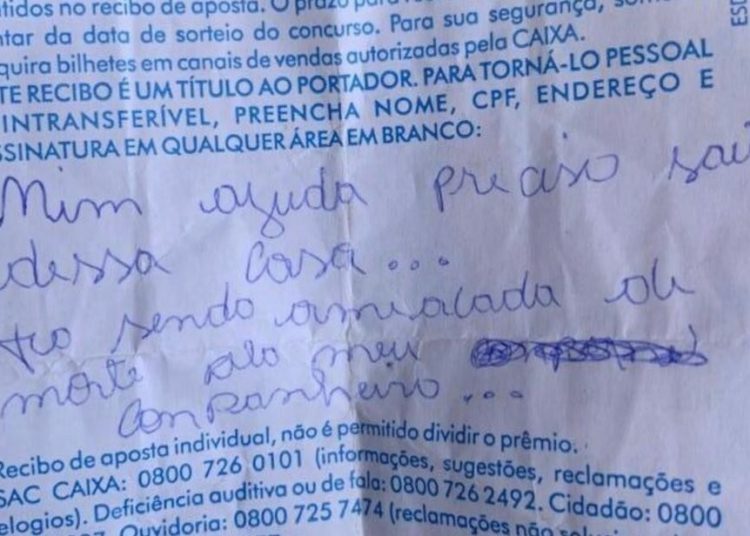 tidos no recibo de aposta. O prazo
ntar da data de sorteio do concurso. Para sua segurança,
quira bilhetes em canais de vendas autorizadas pela CAIXA.
TE RECIBO É UM TÍTULO AO PORTADOR. PARA TORNÁ-LO PESSOAL
INTRANSFERÍVEL, PREENCHA NOME, CPF, ENDEREÇO E
SSINATURA EM QUALQUER ÁREA EM BRANCO:
Mim ajuda preciso sai
dessa casa...
to sendo amiacada de
morte pelo meu
companheiro...
Recibo de aposta individual, não é permitido dividir o prêmio.
SAC CAIXA: 0800 726 0101 (informações, sugestões, reclamações e
elogios). Deficiência auditiva ou de fala: 0800 726 2492. Cidadão: 0800
Ouvidoria: 0800 725 7474 (reclamações não